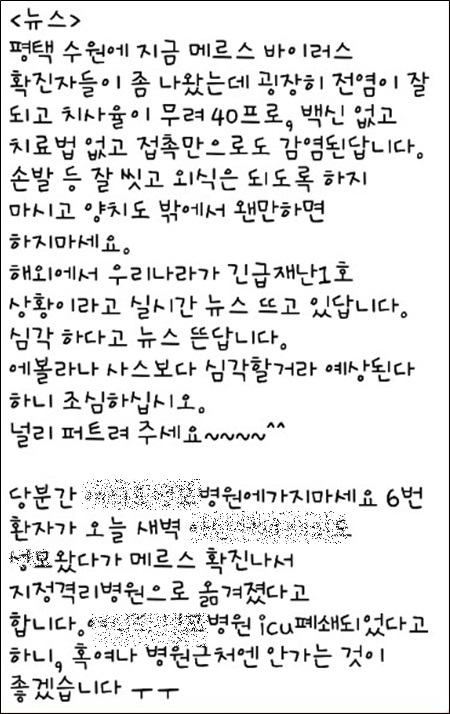 <뉴스>
평택 수원에 지금 메르스 바이러스
확진자들이 좀 나왔는데 굉장히 전염이 잘
되고 치사율이 무려 40프로, 백신 없고
치료법 없고 접촉만으로도 감염된답니다.
손발 등 잘 씻고 외식은 되도록 하지
마시고 양치도 밖에서 왠만하면
하지마세요.
해외에서 우리나라가 긴급재난1호
상황이라고 실시간 뉴스 뜨고 있답니다.
심각 하다고 뉴스 뜬답니다.
에볼라나 사스보다 심각할거라 예상된다
하니 조심하십시오.
널리 퍼트려 주세요~~~~^^
당분간 병원에가지마세요 6번
환자가 오늘 새벽
왔다가 메르스 확진나서
지정격리병원으로 옮겨졌다고
합니다. 병원 icu폐쇄되었다고
하니, 혹여나 병원근처엔 안가는 것이
좋겠습니다 ㅜㅜ